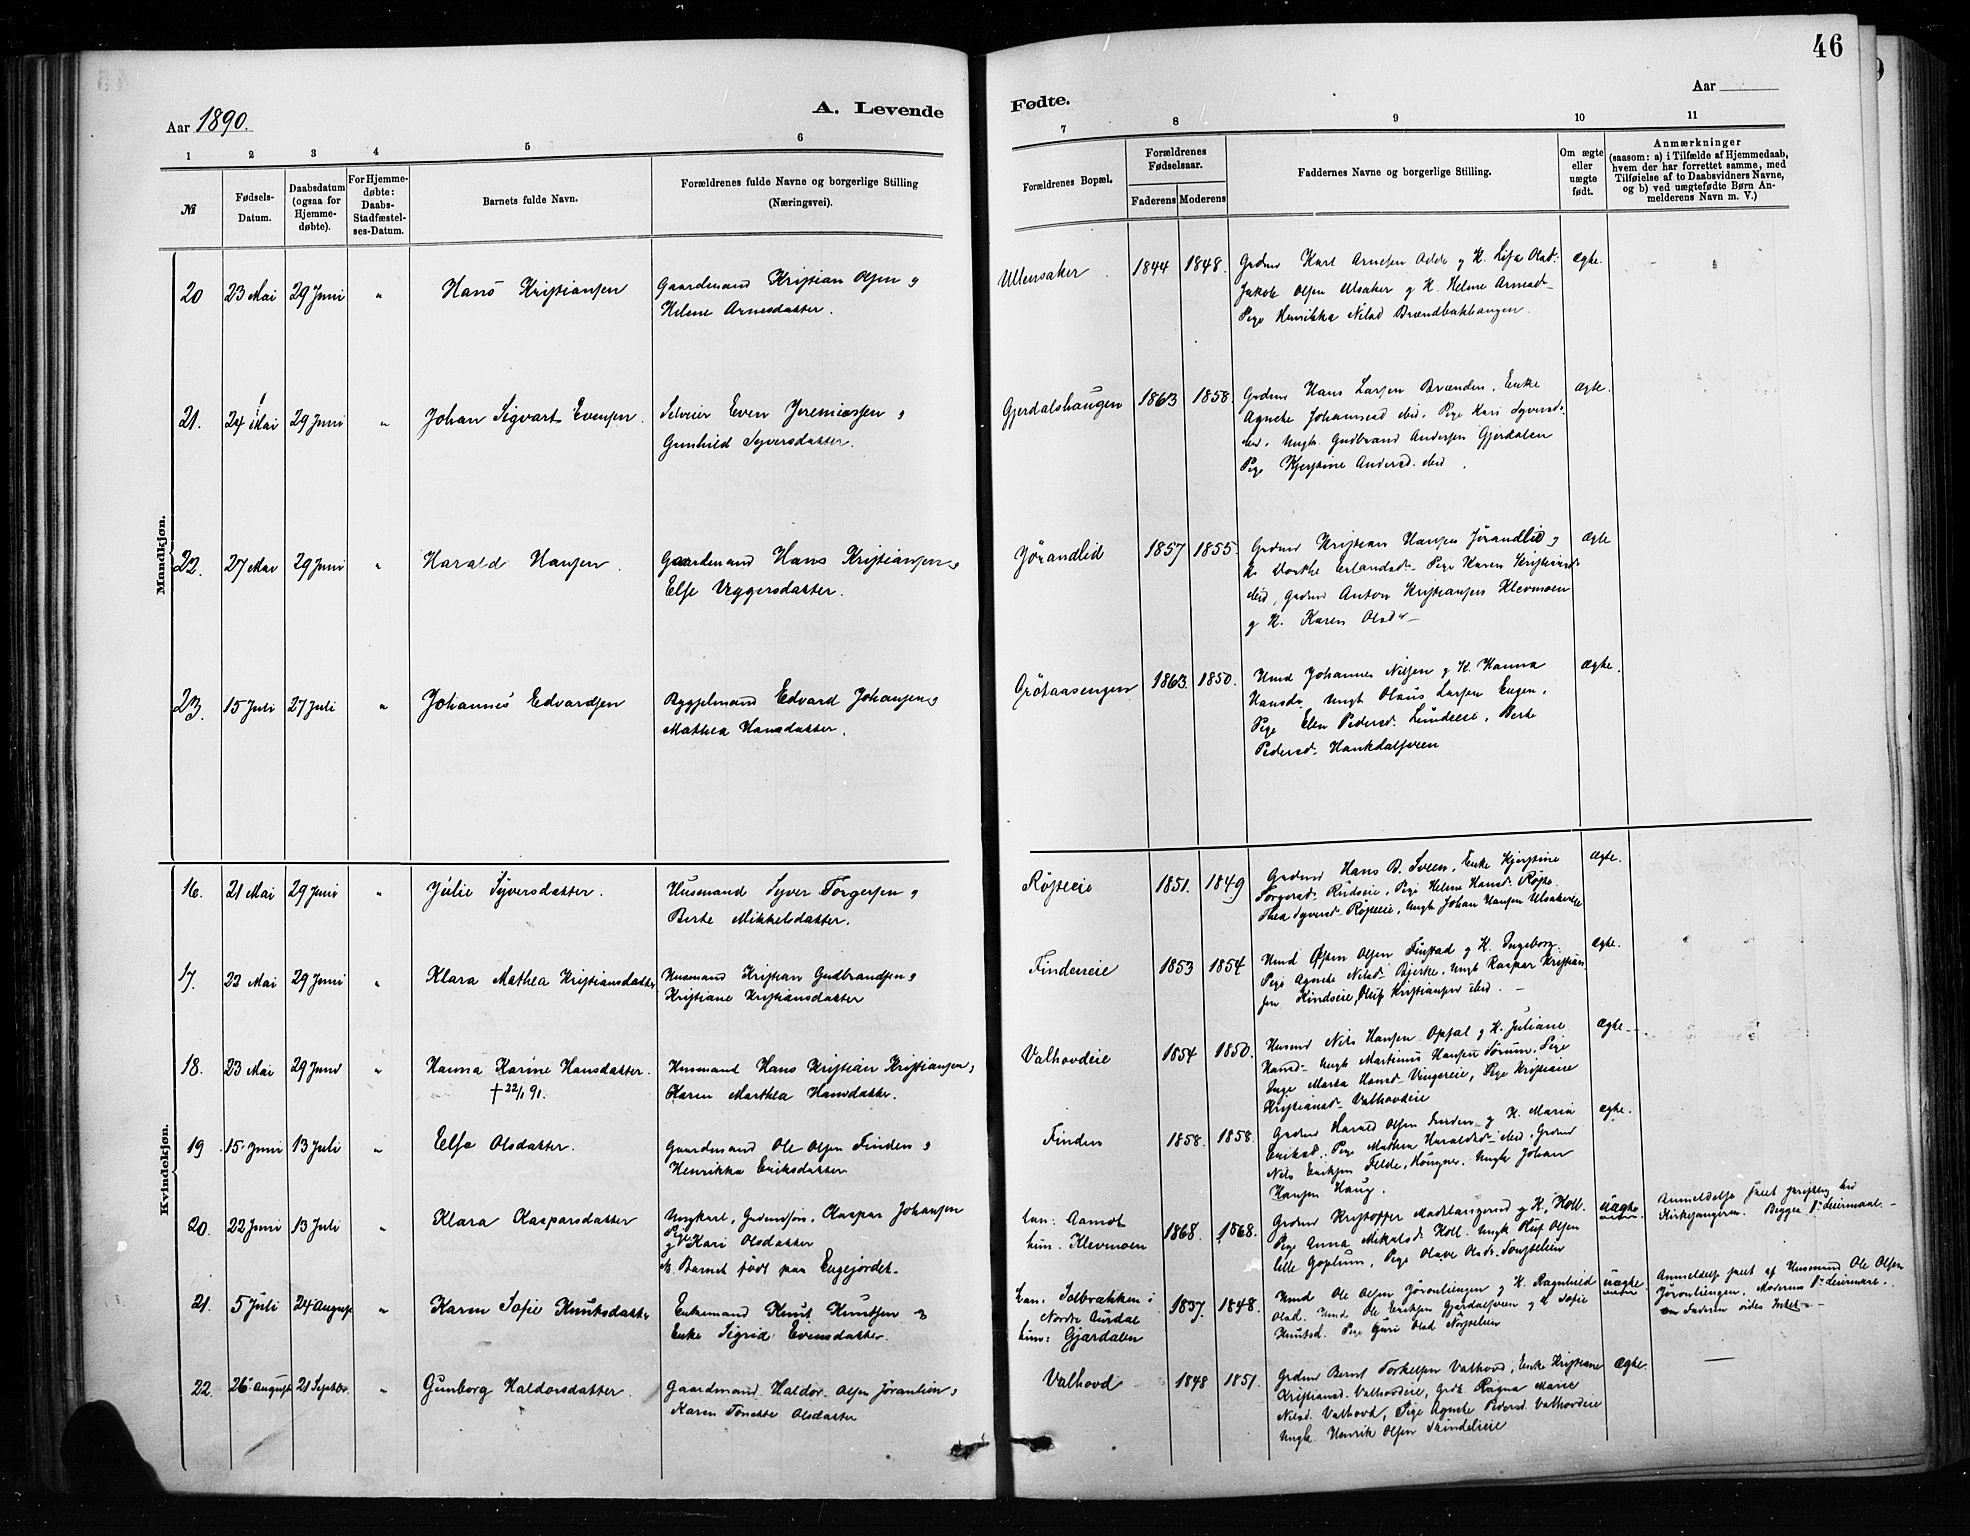 46
Aar 1890.
A. Levende
Fødte.
Aar
1 2 3 4 5 6
7 8 9 10 11
№
Fødsels-
Datum.
Daabsdatum
(ogsaa for
Hjemme-
døbte).
For Hjemme-
døbte:
Daabs-
Stadfæstel-
ses-Datum.
Barnets fulde Navn.
Forældrenes fulde Navne og borgerlige Stilling
(Næringsvei).
Forældrenes Bopæl.
Forældrenes
Fødselsaar.
Faderens Moderens
Faddernes Navne og borgerlige Stilling.
Om ægte
eller
uægte
født.
Anmærkninger
(saasom: a) i Tilfælde af Hjemmedaab,
hvem der har forrettet samme, med
Tilføielse af to Daabsvidners Navne,
og b) ved uægtefødte Børn An-
melderens Navn m. V.)
Mandkjøn.
20 23 Mai 29 Juni " Hans Kristiansen Gaardmand Kristian Olsen og
Helene Arnesdatter.
Ullensaker 1844 1848. Karl Arnesen og K.
Jakob Olsen Ulsaker og K. Helene Arnesd-
Pige Henrikka Nilsd Brændbakhaugen
Ægte.
21. 24 Mai 29 Juni " Johan Sigvart Evensen. Selveier Even Jeremiassen og
Gunhild Syversdatter.
Gjerdalshaugen 1863 1858. Hans Larsen Brænden. Enke
Agnethe Johannesd ibid. Pige Kari Syversd.
ibid. Ungk. Gudbrand Andersen Gjerdalen
Pige Kjerstine Andersd. ibid.
Ægte.
22. 27 Mai 29 Juni " Harald Hansen. Gaardmand Hans Kristiansen og
Else Viggersdatter.
Jørandlid 1857 1855. Grdmd Kristian Hansen Jørandlid og
K. Dorthe Erlandsd- Pige Karen Kristiansd.
ibid, Grdmd Anton Kristiansen Klevmoen
og K. Karen Olsdr-
Ægte
23. 15 Juli 27 Juli " Johannes Edvardsen Bygselmand Edvard Johansen og
Mathea Hansdatter.
Grötaasengen 1863. 1850. Hmd Johannes Nilsen og K. Hanna
Hansdr, Ungk Olaus Larsen Engen.
Pige Elen Pedersd. Lundeeie. Berte
Pedersd-
Ægte.
Kvindekjøn.
16. 21 Mai 29 Juni " Julie Syversdatter. Husmand Syver Torgersen og
Berte Mikkelsdatter.
Røjseeie 1851. 1849 Grdmd Hans B. Sveen, Enke Kjerstine
Torgersd. Rudseie, Pige Helene Hansd.
Thea Syversd- Røjseeie, Ungk Johan Hansen Ulsakereie
Ægte.
17. 22 Mai 29 Juni " Klara Mathea Kristiansdatter Husmand Kristian Gudbrandsen og
Kristiane Kristiansdatter
Findeneie 1853 1854 Hmd Østen Olsen Finstad og K. Ingeborg.
Pige Agnethe Nilsd- Bjerke. Ungk Kaspar Kristian
sen Kindseie, Kristiansen ibid.
Ægte.
18. 23 Mai 29 Juni " Hanna Karine Hansdatter. Husmand Hans Kristian Kristiansen og
† 22/1 91. Karen Marthea Hansdatter.
Valhovdeie 1854 1850. Husmd Nils Hansen Opsal og K. Juliane
Hansd- Ungk Martinus Hansen Sørum. Pige
Inge Marta Hansd- Vingereie, Pige Kristiane
Kristiansd- Valhovdeie
Ægte
19 15 Juni 13 Juli " Else Olsdatter. Gaardmand Ole Olsen Finden og
Henrikka Eriksdatter
Finden 1858. 1858. Grdmd Harald Olsen Finden og K. Maria
Eriksd. Pige Mathea Haraldsd- ibid. Grdmd
Nils Eriksen Felde, Ungk Johan
Hansen Haug.
Ægte.
20. 22 Juni 13 Juli " Klara Kasparsdatter Ungkarl, Gaardmdsøn, Kaspar Johansen
og Pige Kari Olsdatter
Barnet født paa Engejordet.
han: Aamot
hun. Klevmoen 1868. 1868. Grdmd Kristoffer Madslangrud og K., Holl.
Pige Anna Mikalsd. Holl. Ungk Olsen
lille Goplum, Pige Olave Olsdr.
Uægte
Anmeldelse skeet skriftlig ved
Kirkesangeren. Begges 1ste Leiermaal.
21. 5 Juli 24 August " Karen Sofie Knutsdatter Enkemand Knut Knutsen og
Enke Sigrid Evensdatter.
han: Solbrækken i
Nordre Aurdal
hun: Gjerdalen 1837. 1848. Hmd Ole Olsen Jöranlíengen og K. Ragnhild
Olsd. Hmd Ole Eriksen Gjerdalsveen og K Sofie
Knutsd. Pige Guri Olsd
Uægte
Anmeldelse skeet af Husmand Ole Olsen
Jöranliengen. Moderens 1ste Leiermaal.
om Faderen vides Intet
22. 26 August 21 Septbr " Gunborg Haldorsdatter. Gaardmand Haldor Olsen Jöranlien og
Karen Tonette Olsdatter
Valhovd 1848 1851. Grdmd Bernt Torkelsen Valhovd, Enke Kristiane
Kristiansd. Valhovdeie, Ragna Marie
Nilsd. Valhovd, Pige Agnethe Pedersd. Valhovdeie
Ungk. Henrik Olsen
Ægte.